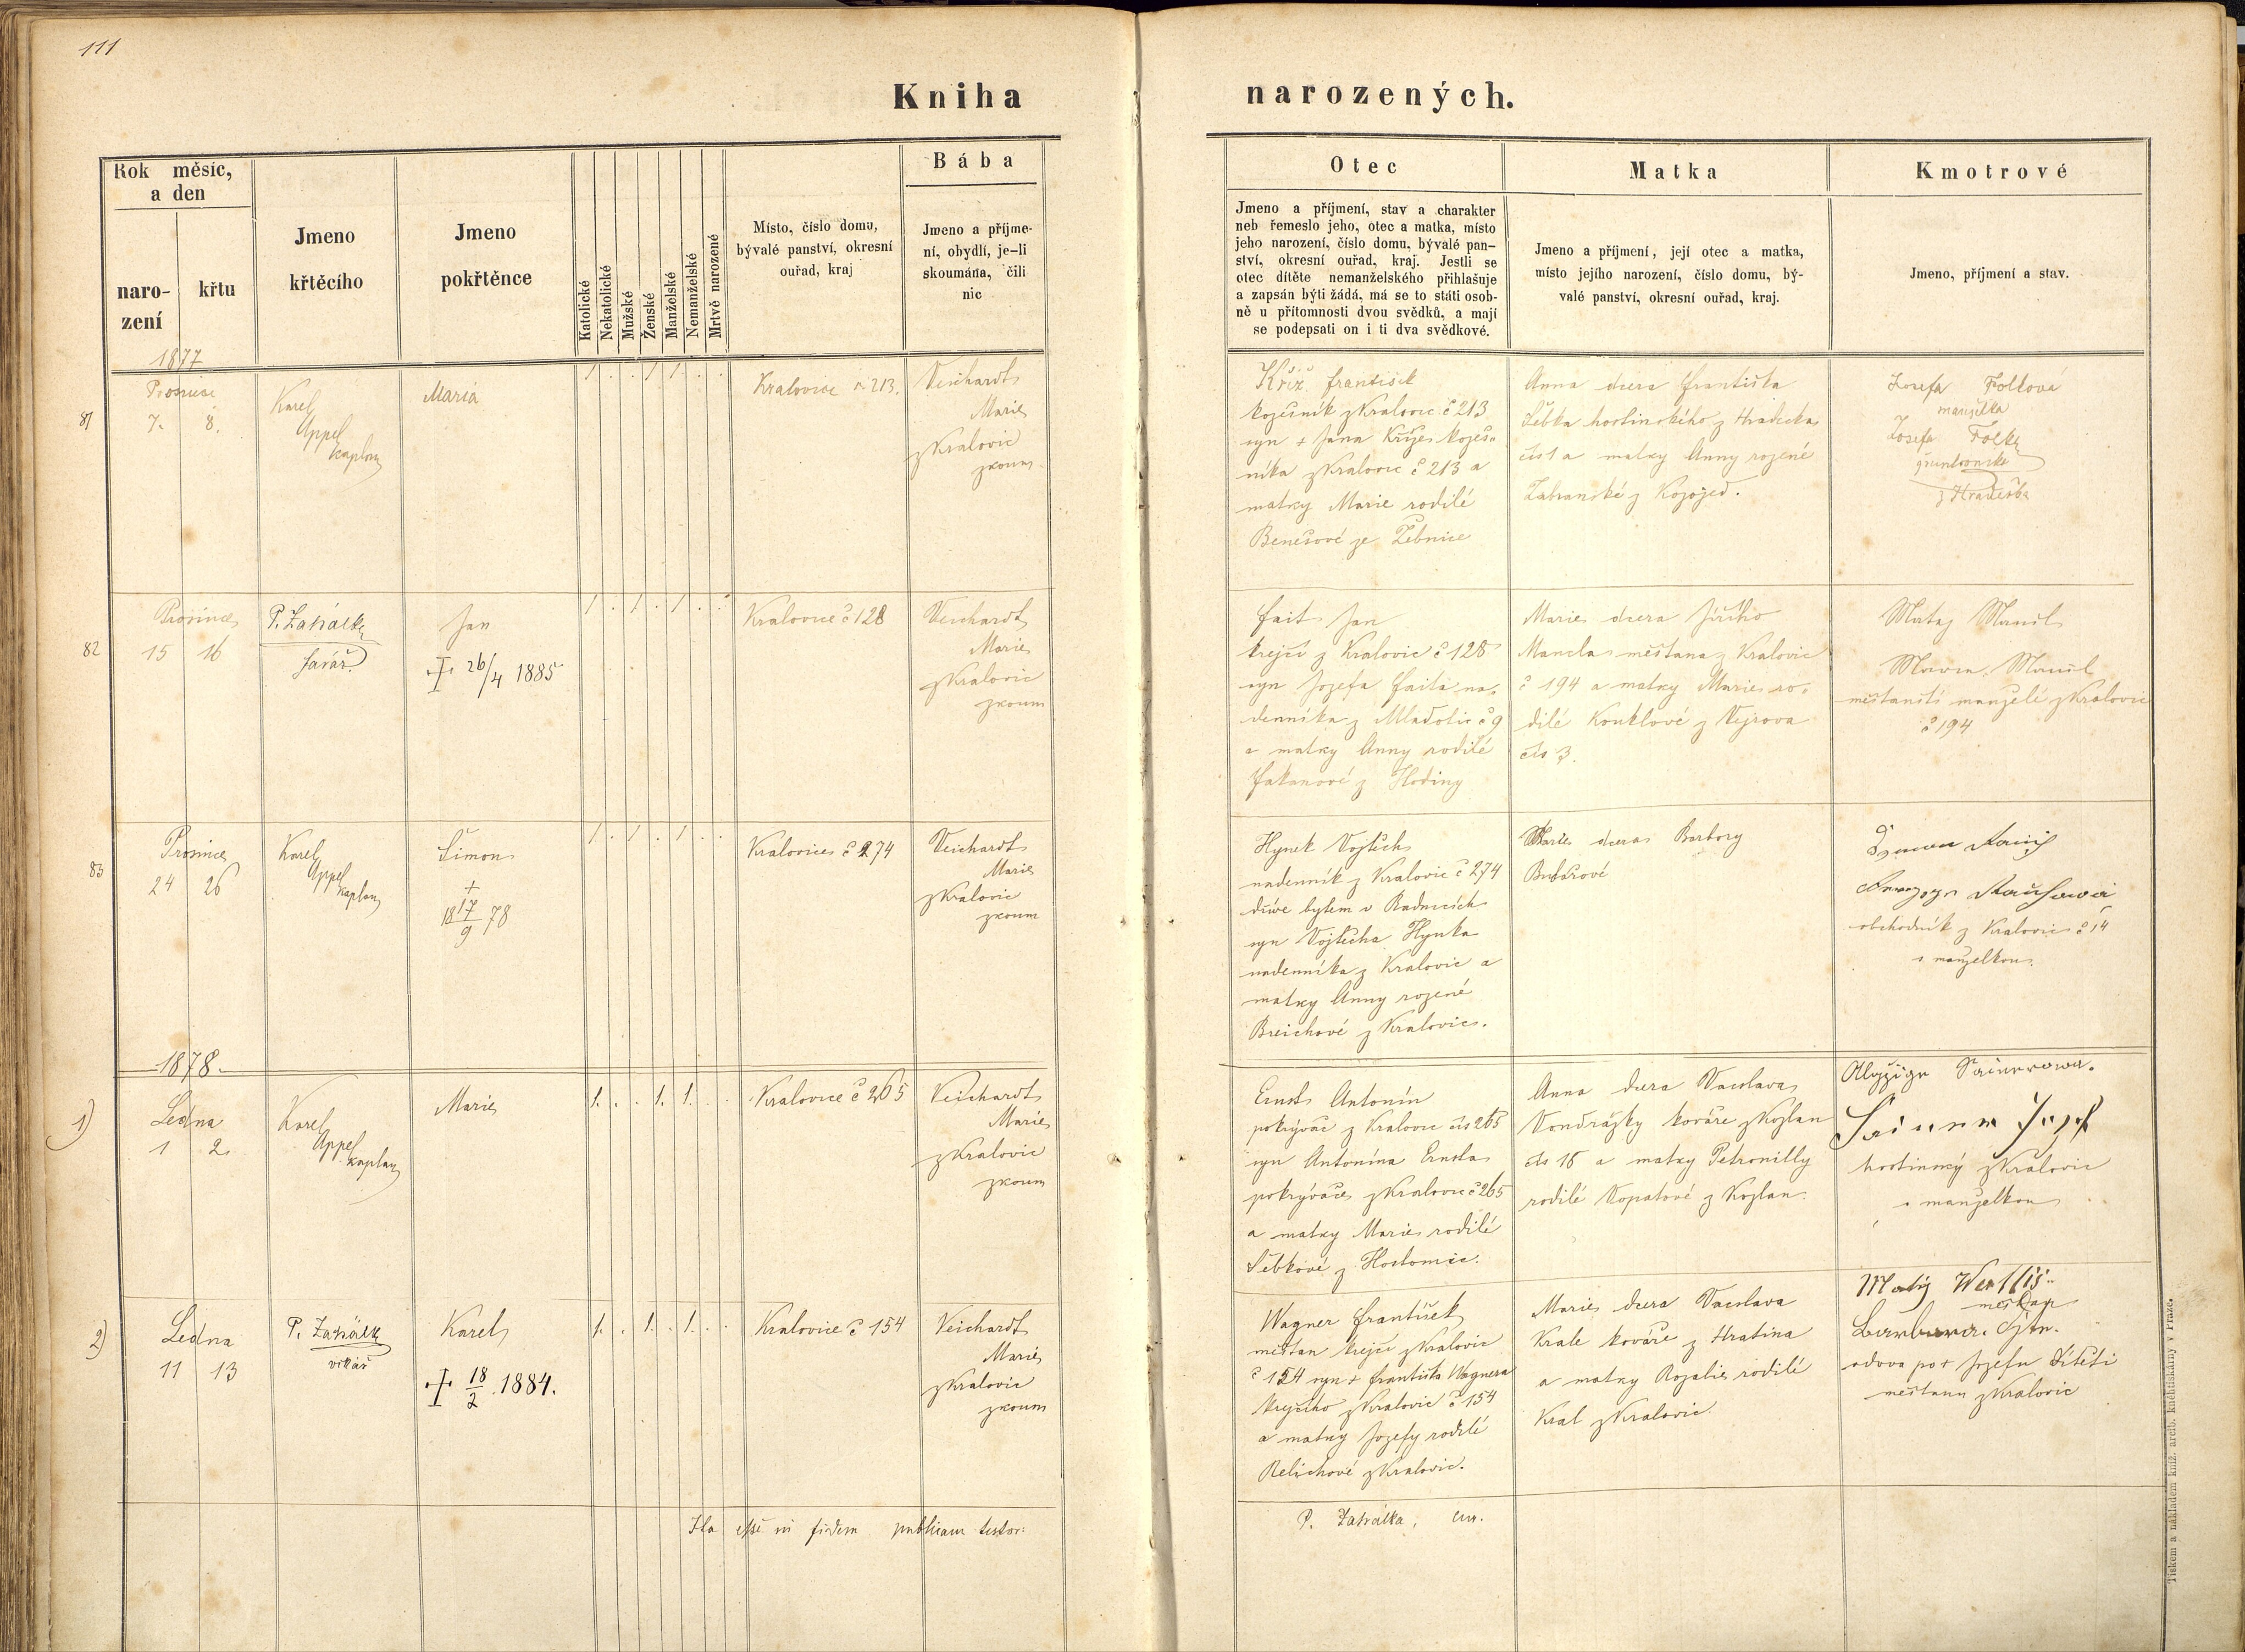 111
Kniha narozených.
Rok měsíc,
a den
naro-
zení
křtu
Jmeno
křtěcího
Jmeno
pokřtěnce
Katolické
Nekatolické
Mužské
Ženské
Manželské
Nemanželské
Mrtvě narozené
Místo, číslo domu,
bývalé panství, okresní
ouřad, kraj
Bába
Jmeno a příjme-
ní, obydlí, je-li
skoumána, čili
nic
Otec
Jmeno a příjmení, stav a charakter
neb řemeslo jeho, otec a matka, místo
jeho narození, číslo domu, bývalé pan-
ství, okresní ouřad, kraj. Jestli se
otec dítěte nemanželského přihlašuje
a zapsán býti žádá, má se to státi osob-
ně u přítomnosti dvou svědků, a mají
se podepsati on i ti dva svědkové.
Matka
Jmeno a příjmení, její otec a matka,
místo jejího narození, číslo domu, bý-
valé panství, okresní ouřad, kraj.
Kmotrové
Jmeno, příjmení a stav.
1877
81
Prosince
7. 8.
Karel
Appel
kaplan
Maria
1 . . 1 1 . .
Kralovice č. 213.
Veichardt
Marie
z Kralovic
zkoum.
Kříž František
kožešník z Kralovic č 213
syn + Jana Kříže kožeš-
níka z Kralovic č 213 a
matky Marie rodilé
Benešové ze Žebnice
Anna dcera Františka
Šebka hostinského z Hradecka
čís 1 a matky Anny rozené
z Kožojed.
Josefa Folková
manželka
Josefa Folka
z Hradecka
82
Prosince
15 16
P. Zahálka
farář
Jan
+ 26/4 1885
1 . 1 . 1 . .
Kralovice č 128
Veichardt
Marie
z Kralovic
zkoum
Fait Jan
krejčí z Kralovic č 128
syn Jozefa Faita na-
denníka z Mladotic č 9
a matky Anny rodilé
z Hodiny
Marie dcera Jiřího
Mancla měšťana z Kralovic
č 194 a matky Marie ro-
dilé Kouklové z Vejrova
čís 3.
Matěj Mancl
Mancl
měšťanští manželé z Kralovic
č 194
83
Prosince
24 26
Karel
Appel
kaplan
Šimon
+
18 17/9 78
1 . 1 . 1 . .
Kralovice č 274
Veichardt
Marie
z Kralovic
zkoum
Hynek Vojtěch
nadenník z Kralovic č 274
dříve bytem v Radnicích
syn Vojtěcha Hynka
nadenníka z Kralovic a
matky Anny rozené
Breichové z Kralovic.
Marie dcera Barbory
obchodník z Kralovic č 14
s manželkou.
1878.
1)
Ledna
1 2.
Karel
Appel
kaplan
Marie
1. . . 1. 1. . .
Kralovice č 265
Veichardt
Marie
z Kralovic
zkoum
Ernst Antonín
pokrývač z Kralovic čís 265
syn Antonína Ernsta
pokrývače z Kralovic č 265
a matky Marie rodilé
Šebkové z Hostomic.
Anna dcera Vácslava
Vondrážky kováře z Kožlan
čís 16 a matky Petronilly
rodilé Vopatové z Kožlan.
Jozef
hostinský z Kralovic
s manželkou
2)
Ledna
11 13
P. Zahálka
vikář
Karel
+ 18/2 1884.
1. . 1. . 1. . .
Kralovice č 154
Veichardt
Marie
z Kralovic
zkoum
Wagner František
měšťan krejčí z Kralovic
č 154 syn + Františka Wagnera
krejčího z Kralovic č 154
a matky Jozefy rodilé
Relichové z Kralovic.
Marie dcera Vácslava
Krale kováře z Hratina
a matky Rozalie rodilé
Kral z Kralovic.
Matěj
měšťan
Barbara
vdova po + Jozefu Dítěti
měšťanu z Kralovic
Ita esse in fidem publicam testor:
P. Zahálka, cur.
Tiskem a nákladem kníž. arcib. knihtiskárny v Praze.